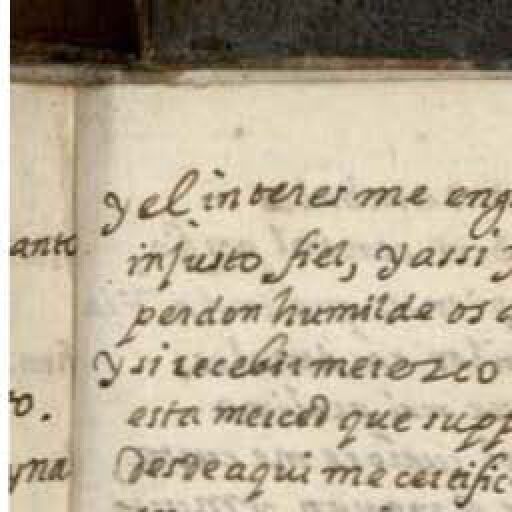 y el interes me eng
anto
injusto fiel, y assi
perdon humilde os
y si recebir merezco
o.
esta merced que supp
yna
Desde aqui me certific